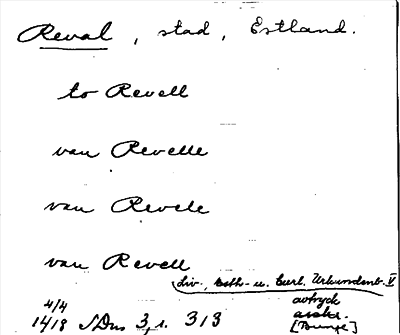 Reval, stad, Estland.
to Revell
van Revelle
van Revele
van Revell
Liv-, Esth- u. Curl. Urkundenb. V
avtryck
4/4
1418 SDns 3, s. 313
[Bunge]